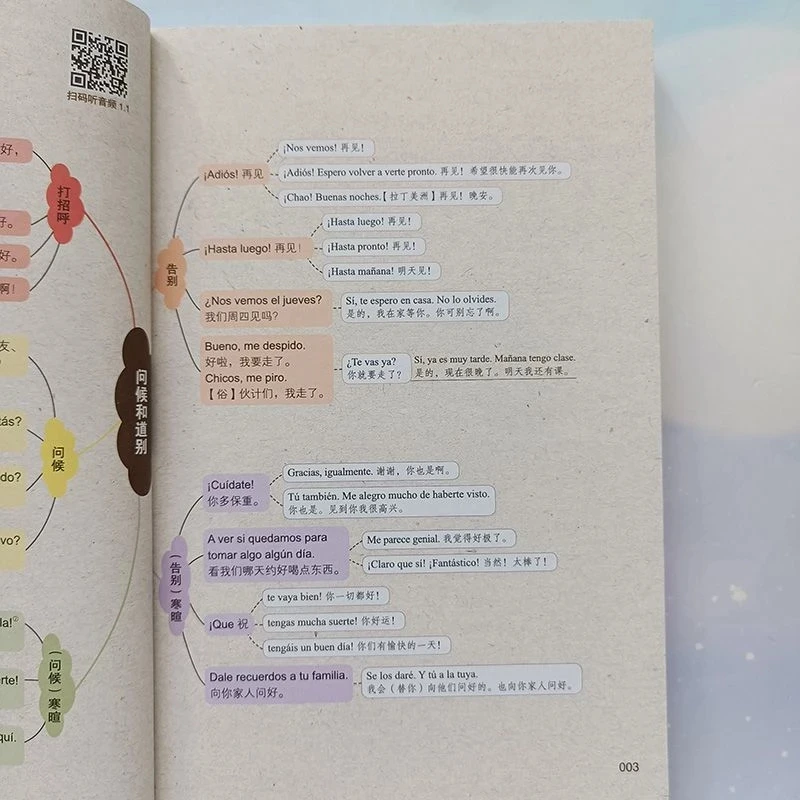 扫码听音频 1.1
好，
打招呼
好。
好。
啊！
友、
问候和道别
tás?
问候
do?
vo?
la!②
（问候）寒暄
rte!
quí.
告别
¡Adiós! 再见
¡Nos vemos! 再见！
¡Adiós! Espero volver a verte pronto. 再见！希望很快能再次见你。
¡Chao! Buenas noches.【拉丁美洲】再见！晚安。
¡Hasta luego! 再见！
¡Hasta luego! 再见！
¡Hasta pronto! 再见！
¡Hasta mañana! 明天见！
¿Nos vemos el jueves?
我们周四见吗？
Sí, te espero en casa. No lo olvides.
是的，我在家等你。你可别忘了啊。
Bueno, me despido.
好啦，我要走了。
Chicos, me piro.
【俗】伙计们，我走了。
¿Te vas ya?
你就要走了？
Sí, ya es muy tarde. Mañana tengo clase.
是的，现在很晚了。明天我还有课。
（告别）寒暄
¡Cuídate!
你多保重。
Gracias, igualmente. 谢谢，你也是啊。
Tú también. Me alegro mucho de haberte visto.
你也是。见到你我很高兴。
A ver si quedamos para
tomar algo algún día.
看我们哪天约好喝点东西。
Me parece genial. 我觉得好极了。
¡Claro que sí! ¡Fantástico! 当然！太棒了！
¡Que 祝
te vaya bien! 你一切都好！
tengas mucha suerte! 你好运！
tengáis un buen día! 你们有愉快的一天！
Dale recuerdos a tu familia.
向你家人问好。
Se los daré. Y tú a la tuya.
我会（替你）向他们问好的。也向你家人问好。
003